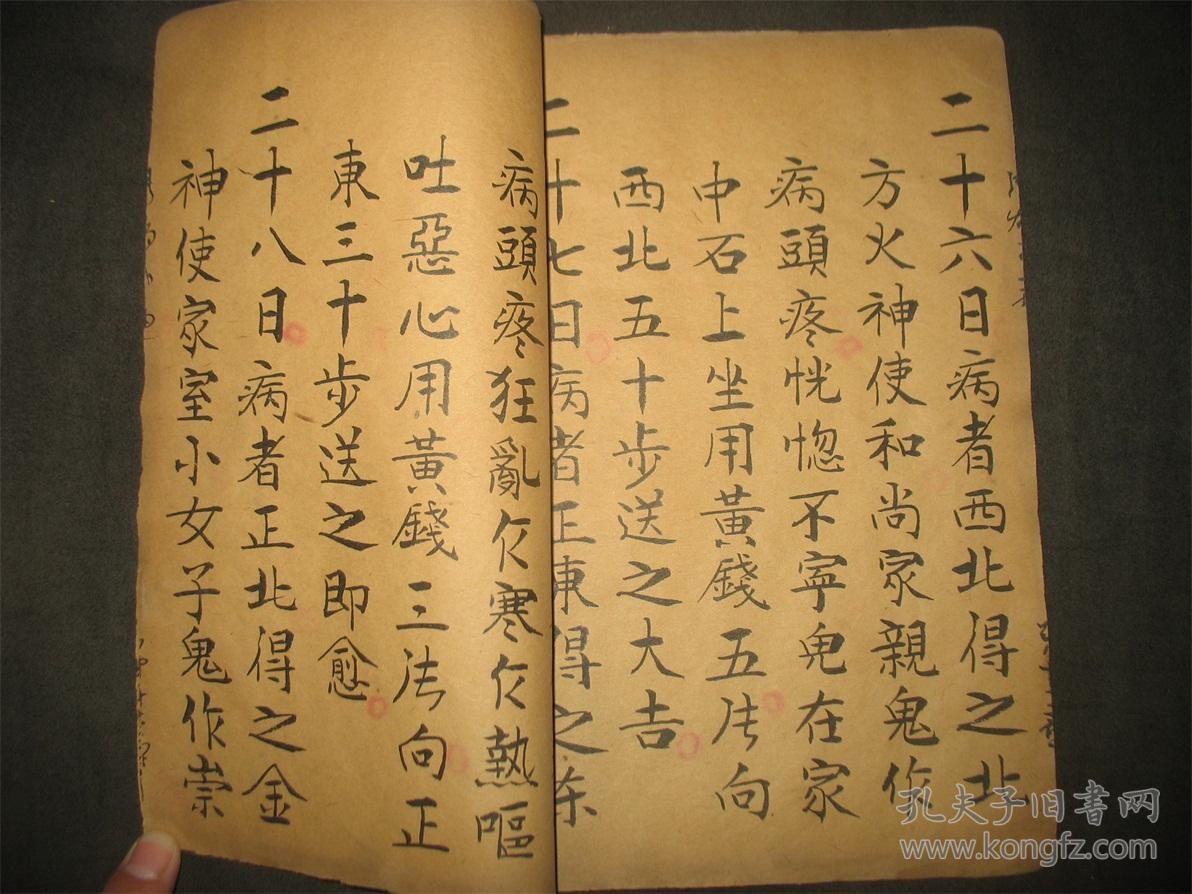 二十六日病者西北得之北
方火神使和尚家親鬼作
病頭疼恍惚不寧鬼在家
中石上坐用黃錢五张向
西北五十步送之大吉
二十七日病者正東得之东
病頭疼狂亂乍寒乍熱嘔
吐惡心用黃錢三张向正
東三十步送之即愈
二十八日病者正北得之金
神使家室小女子鬼作崇
孔夫子旧书网
www.kongfz.com